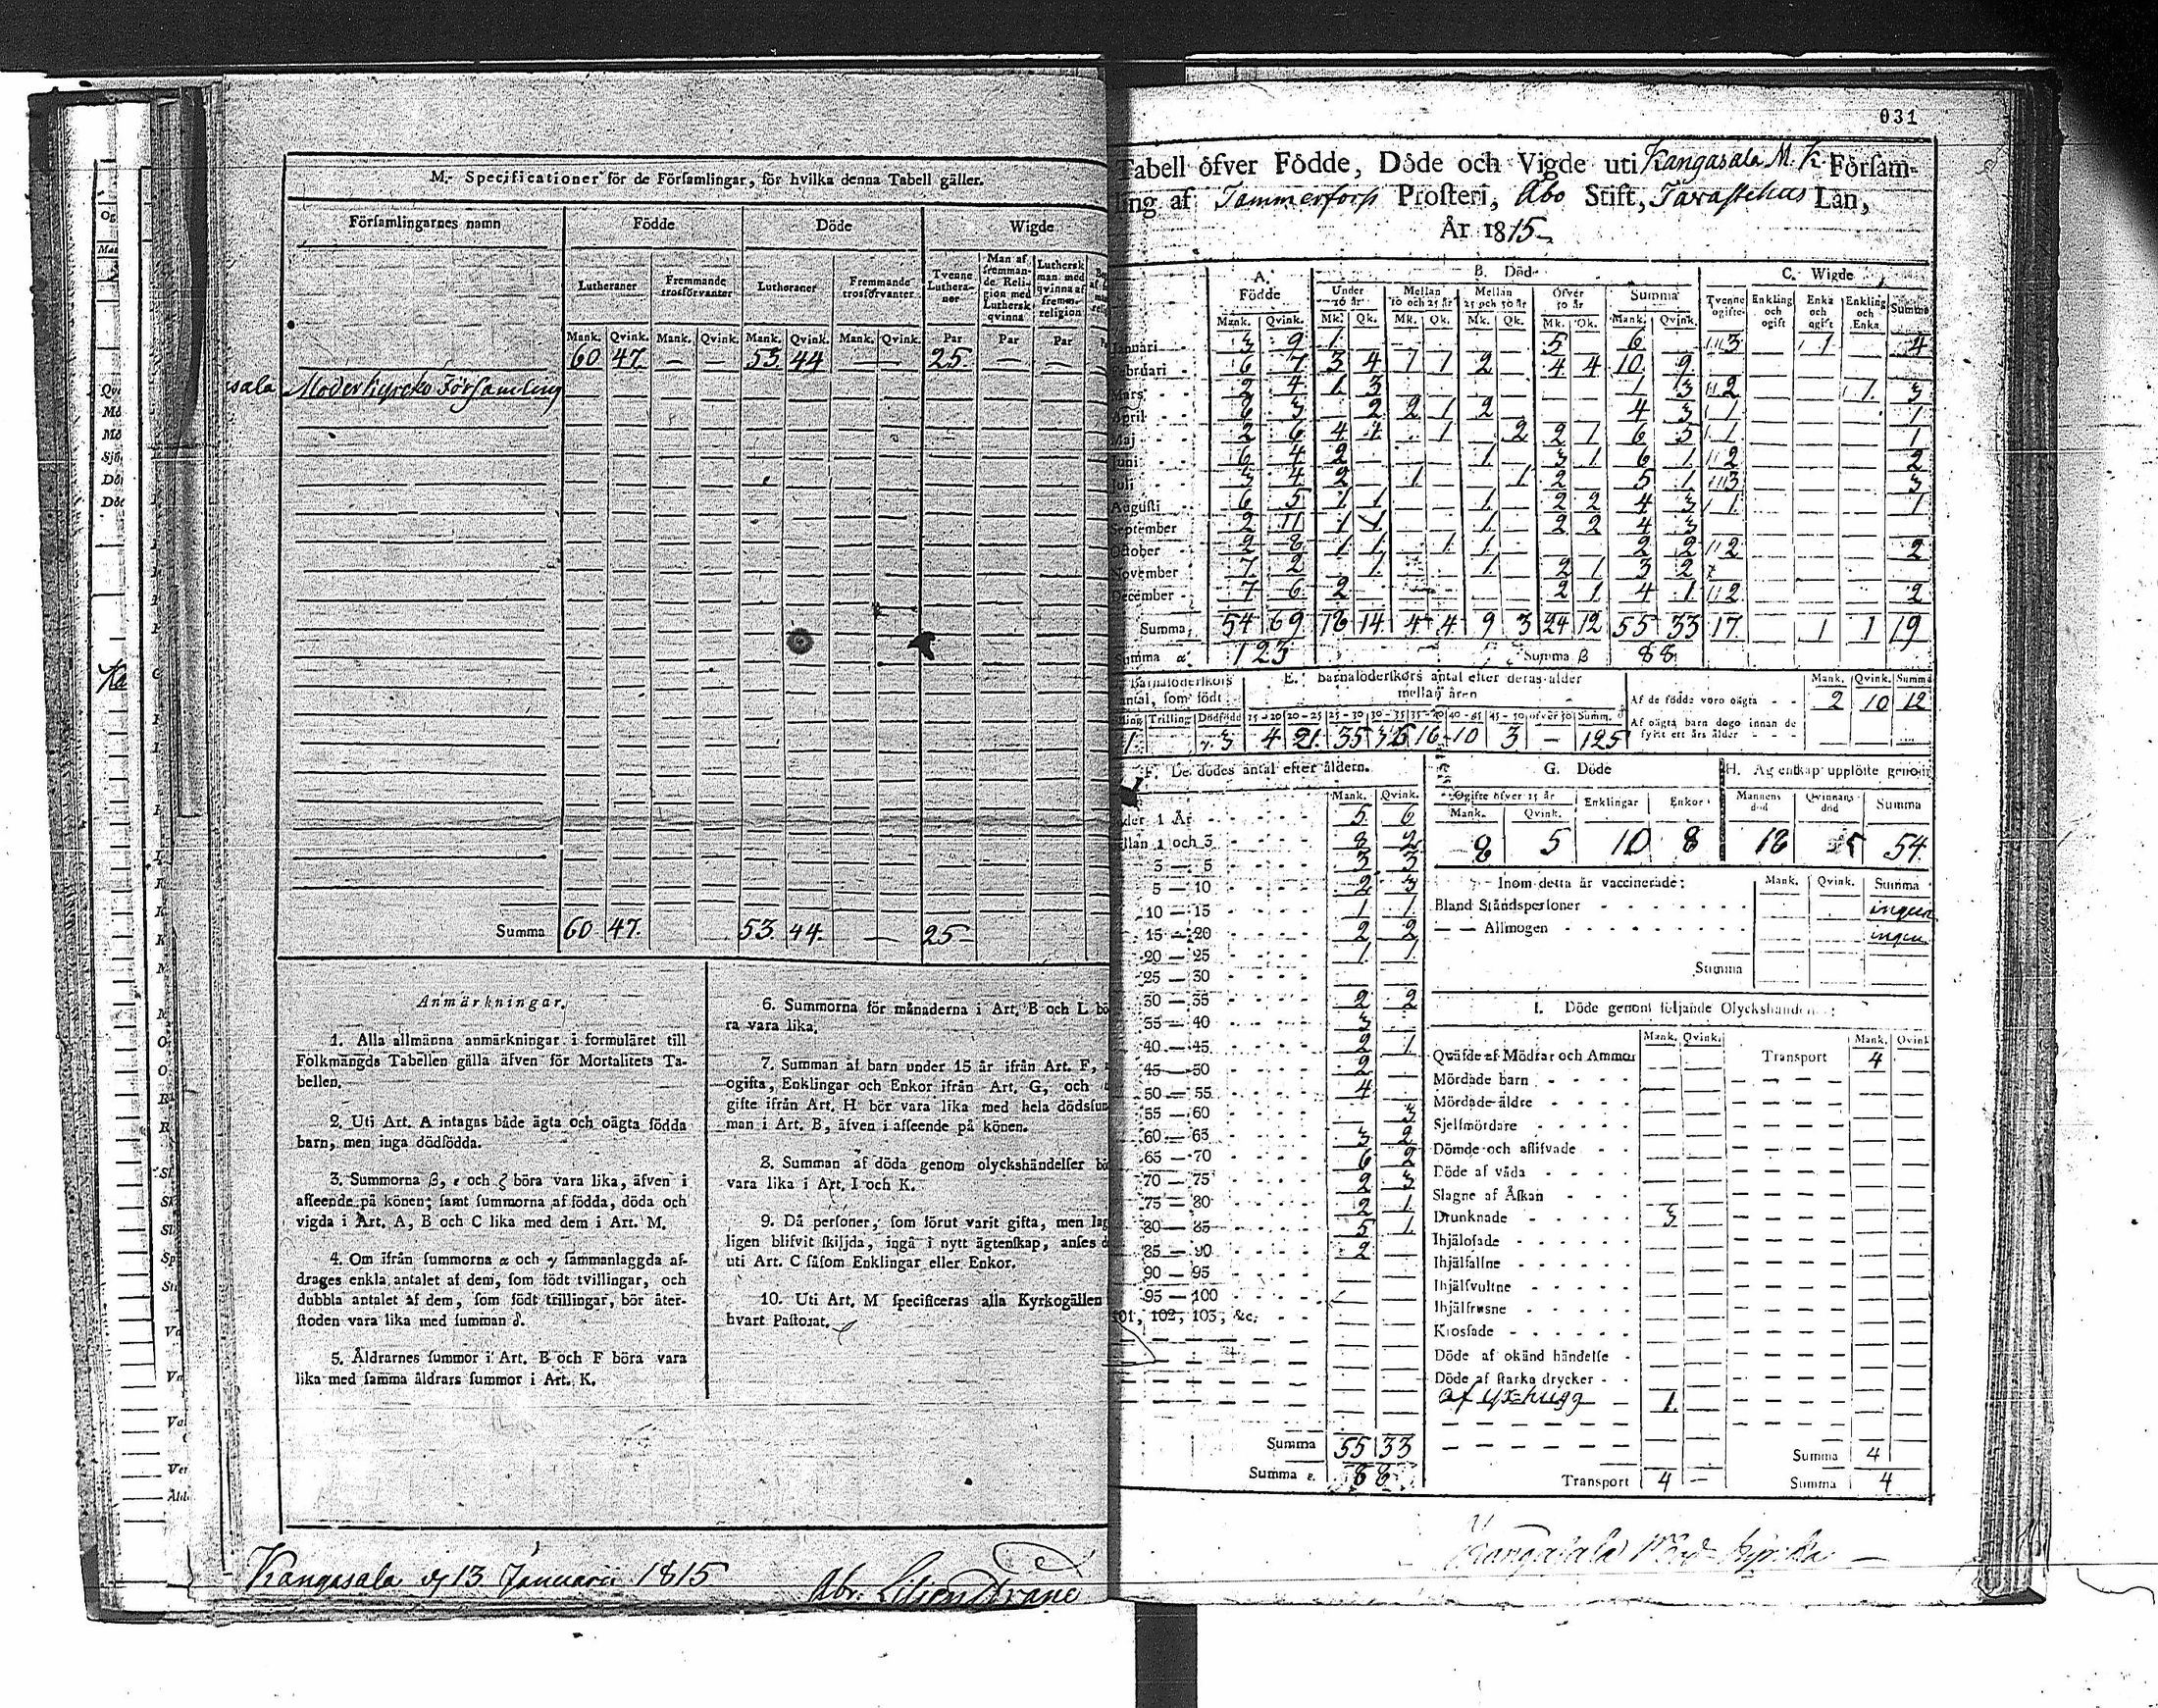 M. Specificationer för de Församlingar, för hvilka denna Tabell gäller.
Församlingarnes namn Födde Döde Wigde
Lutheraner Fremmande trosförvanter Lutheraner Fremmande trosförvanter Tvenne Lutheraner Man af fremmande Religion med Luthersk qvinna Luthersk man med qvinna af fremm. religion
Mank. Qvink. Mank. Qvink. Mank. Qvink. Mank. Qvink. Par Par Par
60 47. — — 53. 44 — — 25. — —
sala Moderkyrcko Församling
Summa 60 47. 53. 44. — 25
Anmärkningar.
1. Alla allmänna anmärkningar i formuläret till
Folkmängds Tabellen gälla äfven för Mortalitets Ta-
bellen.
2. Uti Art. A intagas både ägta och oägta födda
barn, men inga dödfödda.
3. Summorna β, ε och ζ böra vara lika, äfven i
afseende på könen; samt summorna af födda, döda och
vigda i Art. A, B och C lika med dem i Art. M.
4. Om ifrån summorna α och γ sammanlaggda af-
drages enkla antalet af dem, som födt tvillingar, och
dubbla antalet af dem, som födt trillingar, bör åter-
stoden vara lika med summan δ.
5. Åldrarnes summor i Art. B och F böra vara
lika med samma åldrars summor i Art. K.
6. Summorna för månaderna i Art. B och L bö
ra vara lika.
7. Summan af barn under 15 år ifrån Art. F,
ogifta, Enklingar och Enkor ifrån Art. G, och
gifte ifrån Art. H bör vara lika med hela dödsum
man i Art. B, äfven i afseende på könen.
8. Summan af döda genom olyckshändelser bö
vara lika i Art. I och K.
9. Då personer, som förut varit gifta, men lag
ligen blifvit skiljda, ingå i nytt ägtenskap, anses d
uti Art. C såsom Enklingar eller Enkor.
10. Uti Art. M specificeras alla Kyrkogällen
hvart Pastorat.
Kangasala 13 Januarii 1815 Abr. Lilienstrane
031
Tabell öfver Födde, Döde och Vigde uti Kangasala M. K Försam-
ling af Tammerfors Prosteri, Åbo Stift, Tavastehus Län,
År 1815
A. Födde B. Död C. Wigde
Under 10 år Mellan 10 och 25 år Mellan 25 och 50 år Öfver 50 år Summa Tvenne ogifte Enkling och ogift Enka och ogift Enkling och Enka Summa
Mank. Qvink. Mk. Qk. Mk. Qk. Mk. Qk. Mk. Qk. Mank. Qvink.
Januari 3 9 1 5 6 3 1 4
Februari 6 7 3 4 1 1 2 4 4 10 9
Mars 2 4 1 3 1 3 2 1 3
April 6 3 2 2 1 2 4 3 1 1
Maj 2 6 4 1 1 2 2 1 6 5 1 1
Juni 6 4 2 1 3 1 6 1 2 2
Juli 3 4 2 1 1 2 5 1 3 3
Augusti 6 5 1 1 1 2 2 4 3 1 1
September 2 11 1 1 1 2 2 4 3
October 2 8 1 1 1 1 2 2 2 2
November 7 2 1 1 2 1 3 2
December 7 6 2 2 1 4 1 2 2
Summa 54 69 18 14 4 4 9 3 24 12 55 33 17 1 1 19
Summa α 123 Summa β 88
Barnaföderskors antal, som födt E. Barnaföderskors antal efter deras ålder mellan åren
Trilling Dödfödd 15—20 20—25 25—30 30—35 35—40 40—45 45—50 öfver 50 Summ. δ
1 3 4 21 35 36 16 10 3 — 125
Mank. Qvink. Summa
Af de födde voro oägta 2 10 12
Af oägta barn dogo innan de
fyllt ett års ålder
F. De dödes antal efter åldern.
Mank. Qvink.
der 1 År 5 6
llan 1 och 3 8 2
3 — 5 3 3
5 — 10 2 3
10 — 15 1 1
15 — 20 2 2
20 — 25 1 1
25 — 30
30 — 35 2 2
35 — 40 3
40 — 45 2 1
45 — 50 2
50 — 55 4
55 — 60 3
60 — 65 3 2
65 — 70 6 2
70 — 75 2 3
75 — 80 2 1
80 — 85 5 1
85 — 90 2
90 — 95
95 — 100
101, 102, 103, &c.
Summa 55 33
Summa ε. 88
G. Döde
Ogifte öfver 15 år Enklingar Enkor
Mank. Qvink.
8 5 10 8
H. Ägtenskap upplöste genom
Mannens död Qvinnans död Summa
18 54
Inom detta år vaccinerade: Mank. Qvink. Summa
Bland Ståndspersoner ingen
— — Allmogen ingen
Summa
I. Döde genom följande Olyckshändelser:
Mank. Qvink. Mank. Qvink
Qväfde af Mödrar och Ammor Transport 4
Mördade barn
Mördade äldre
Sjelfmördare
Dömde och aflifvade
Döde af våda
Slagne af Åskan
Drunknade 3
Ihjälosade
Ihjälfallne
Ihjälsvultne
Ihjälfrusne
Krossade
Döde af okänd händelse
Döde af starka drycker
af yxhugg 1.
Summa 4
Transport 4 — Summa 4
Kangasala Mod. Kyrka